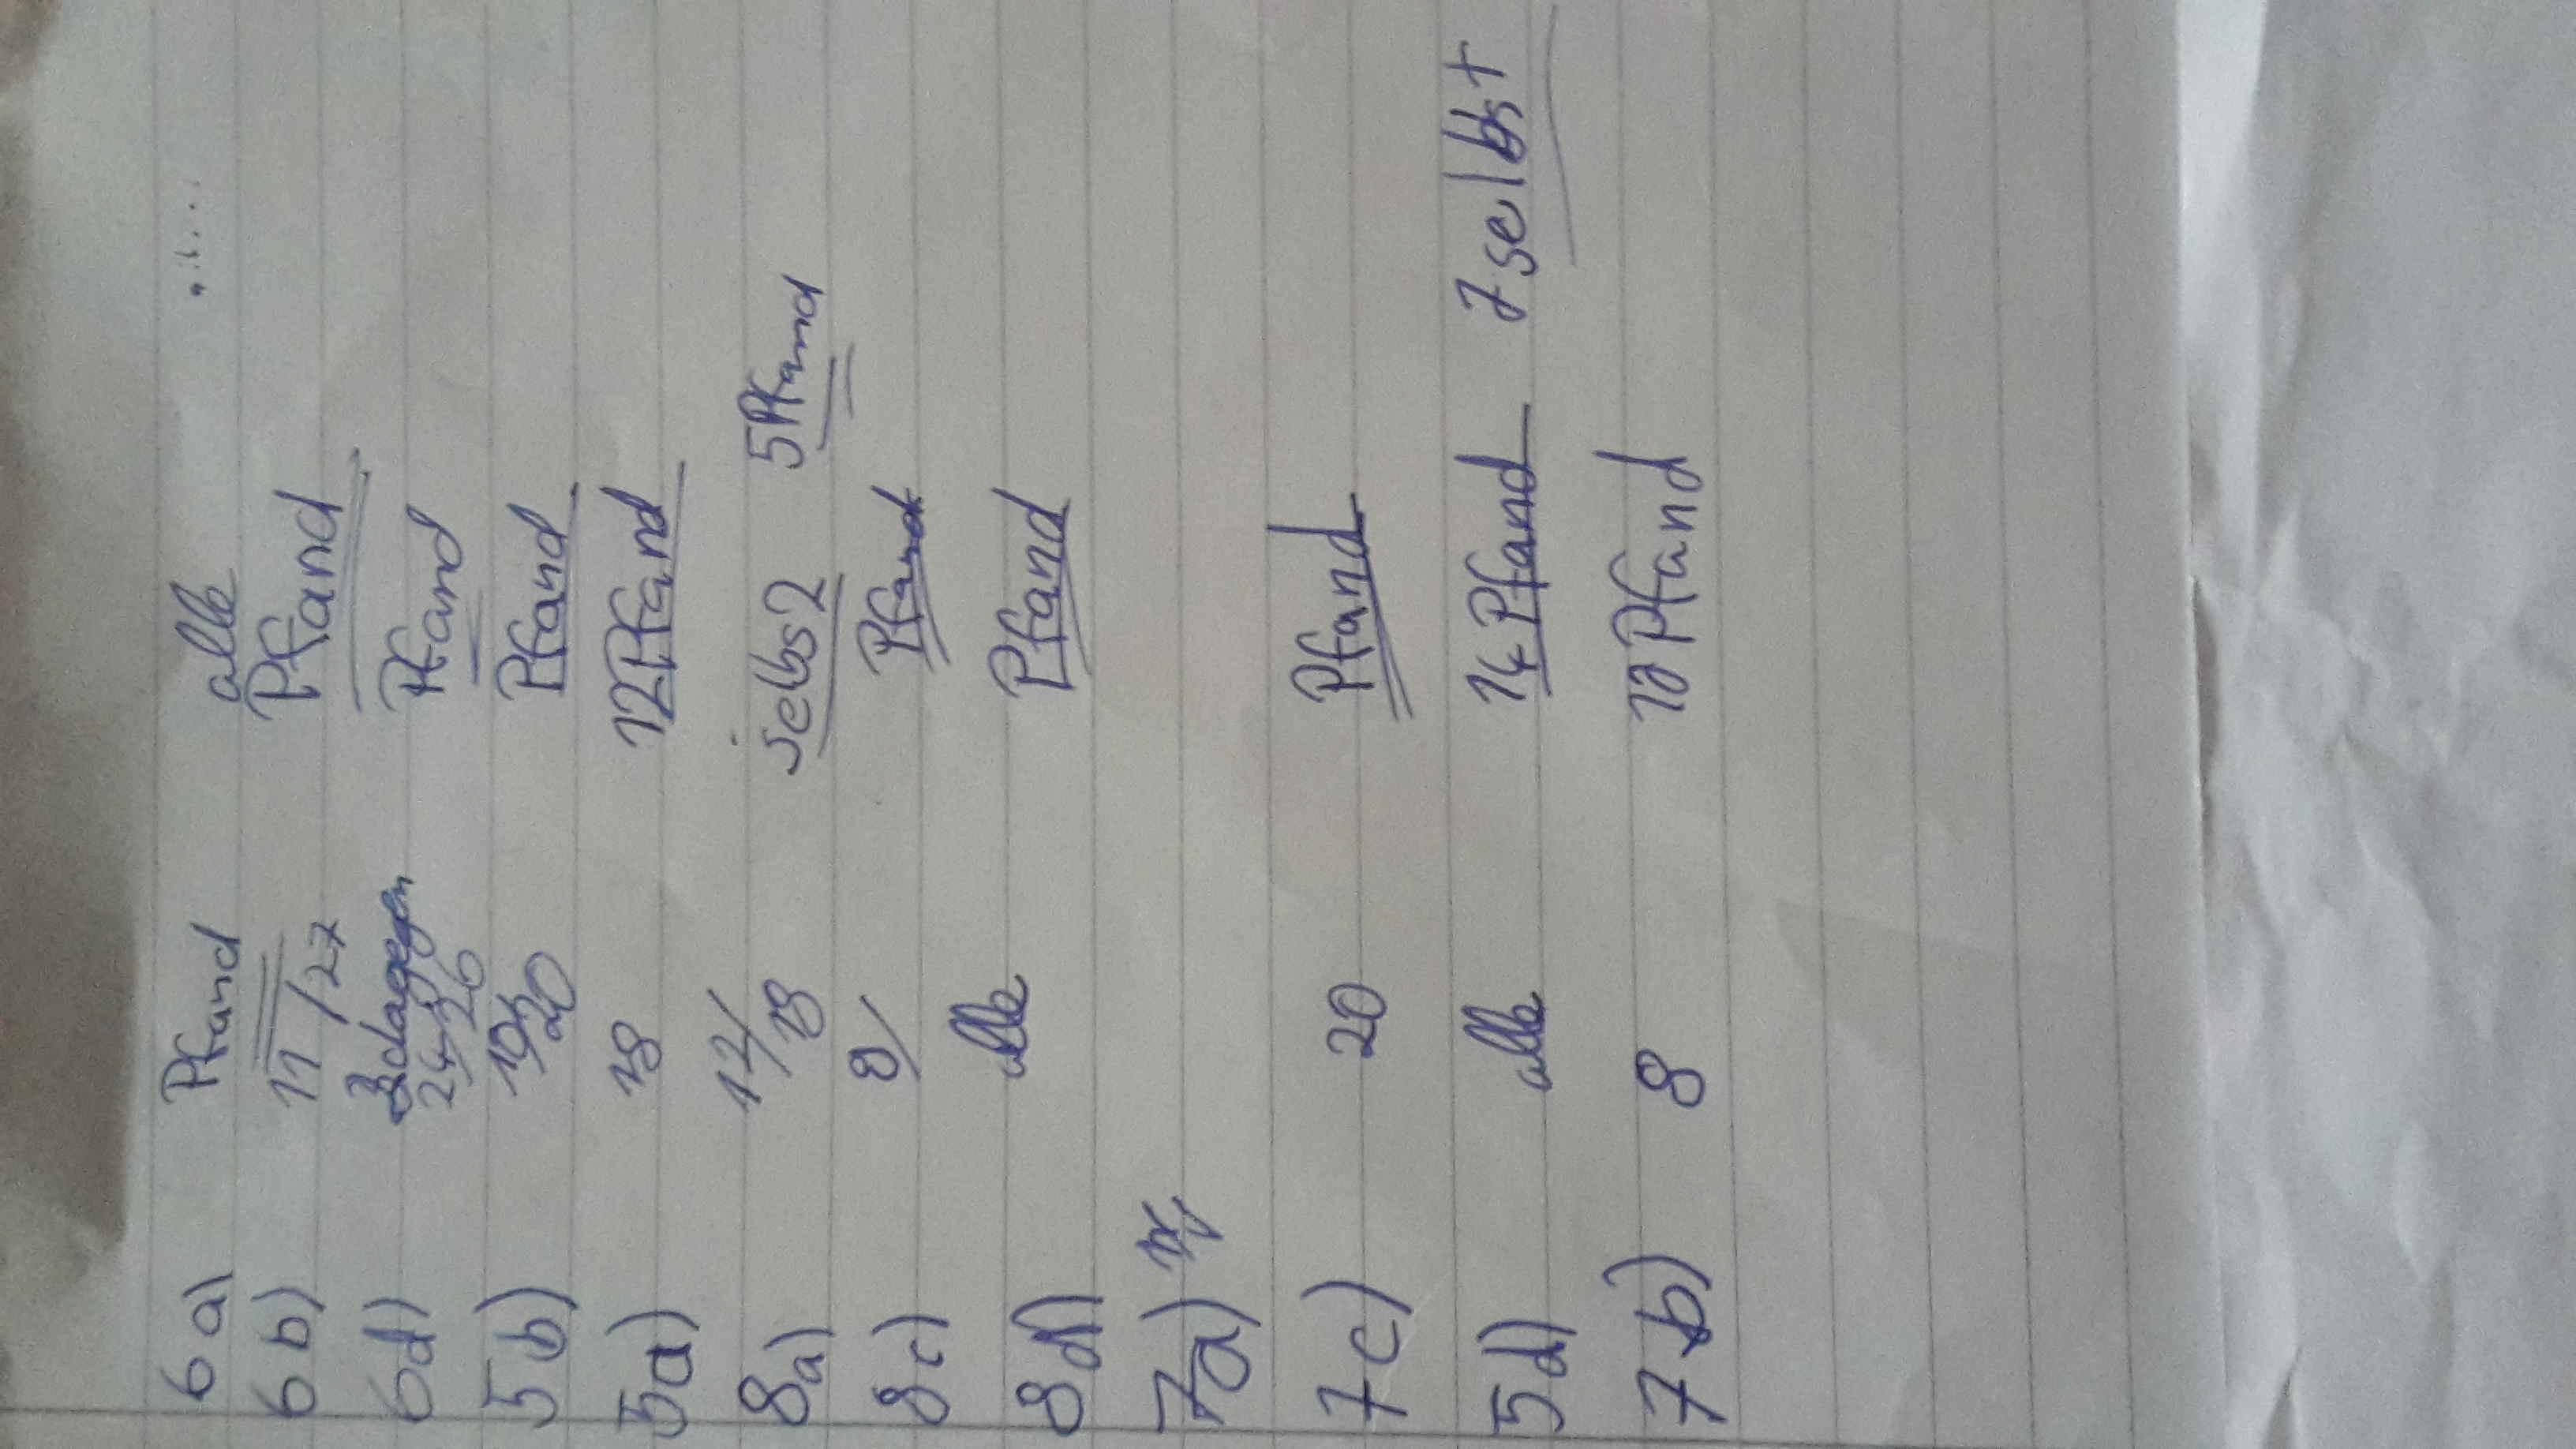 6a) Pfand alle
6b) 11/27 Pfand
6d) 3 dagegen Pfand
24/26
5b) 19/20 Pfand
5a) 18 12 Pfand
8a) 17/18 selbs 2 5 Pfand
8c) 9/ Pfand
8d) alle Pfand
7a)
7c) 20 Pfand
5d) alle 14 Pfand 7 selbst
7b) 8 Pfand